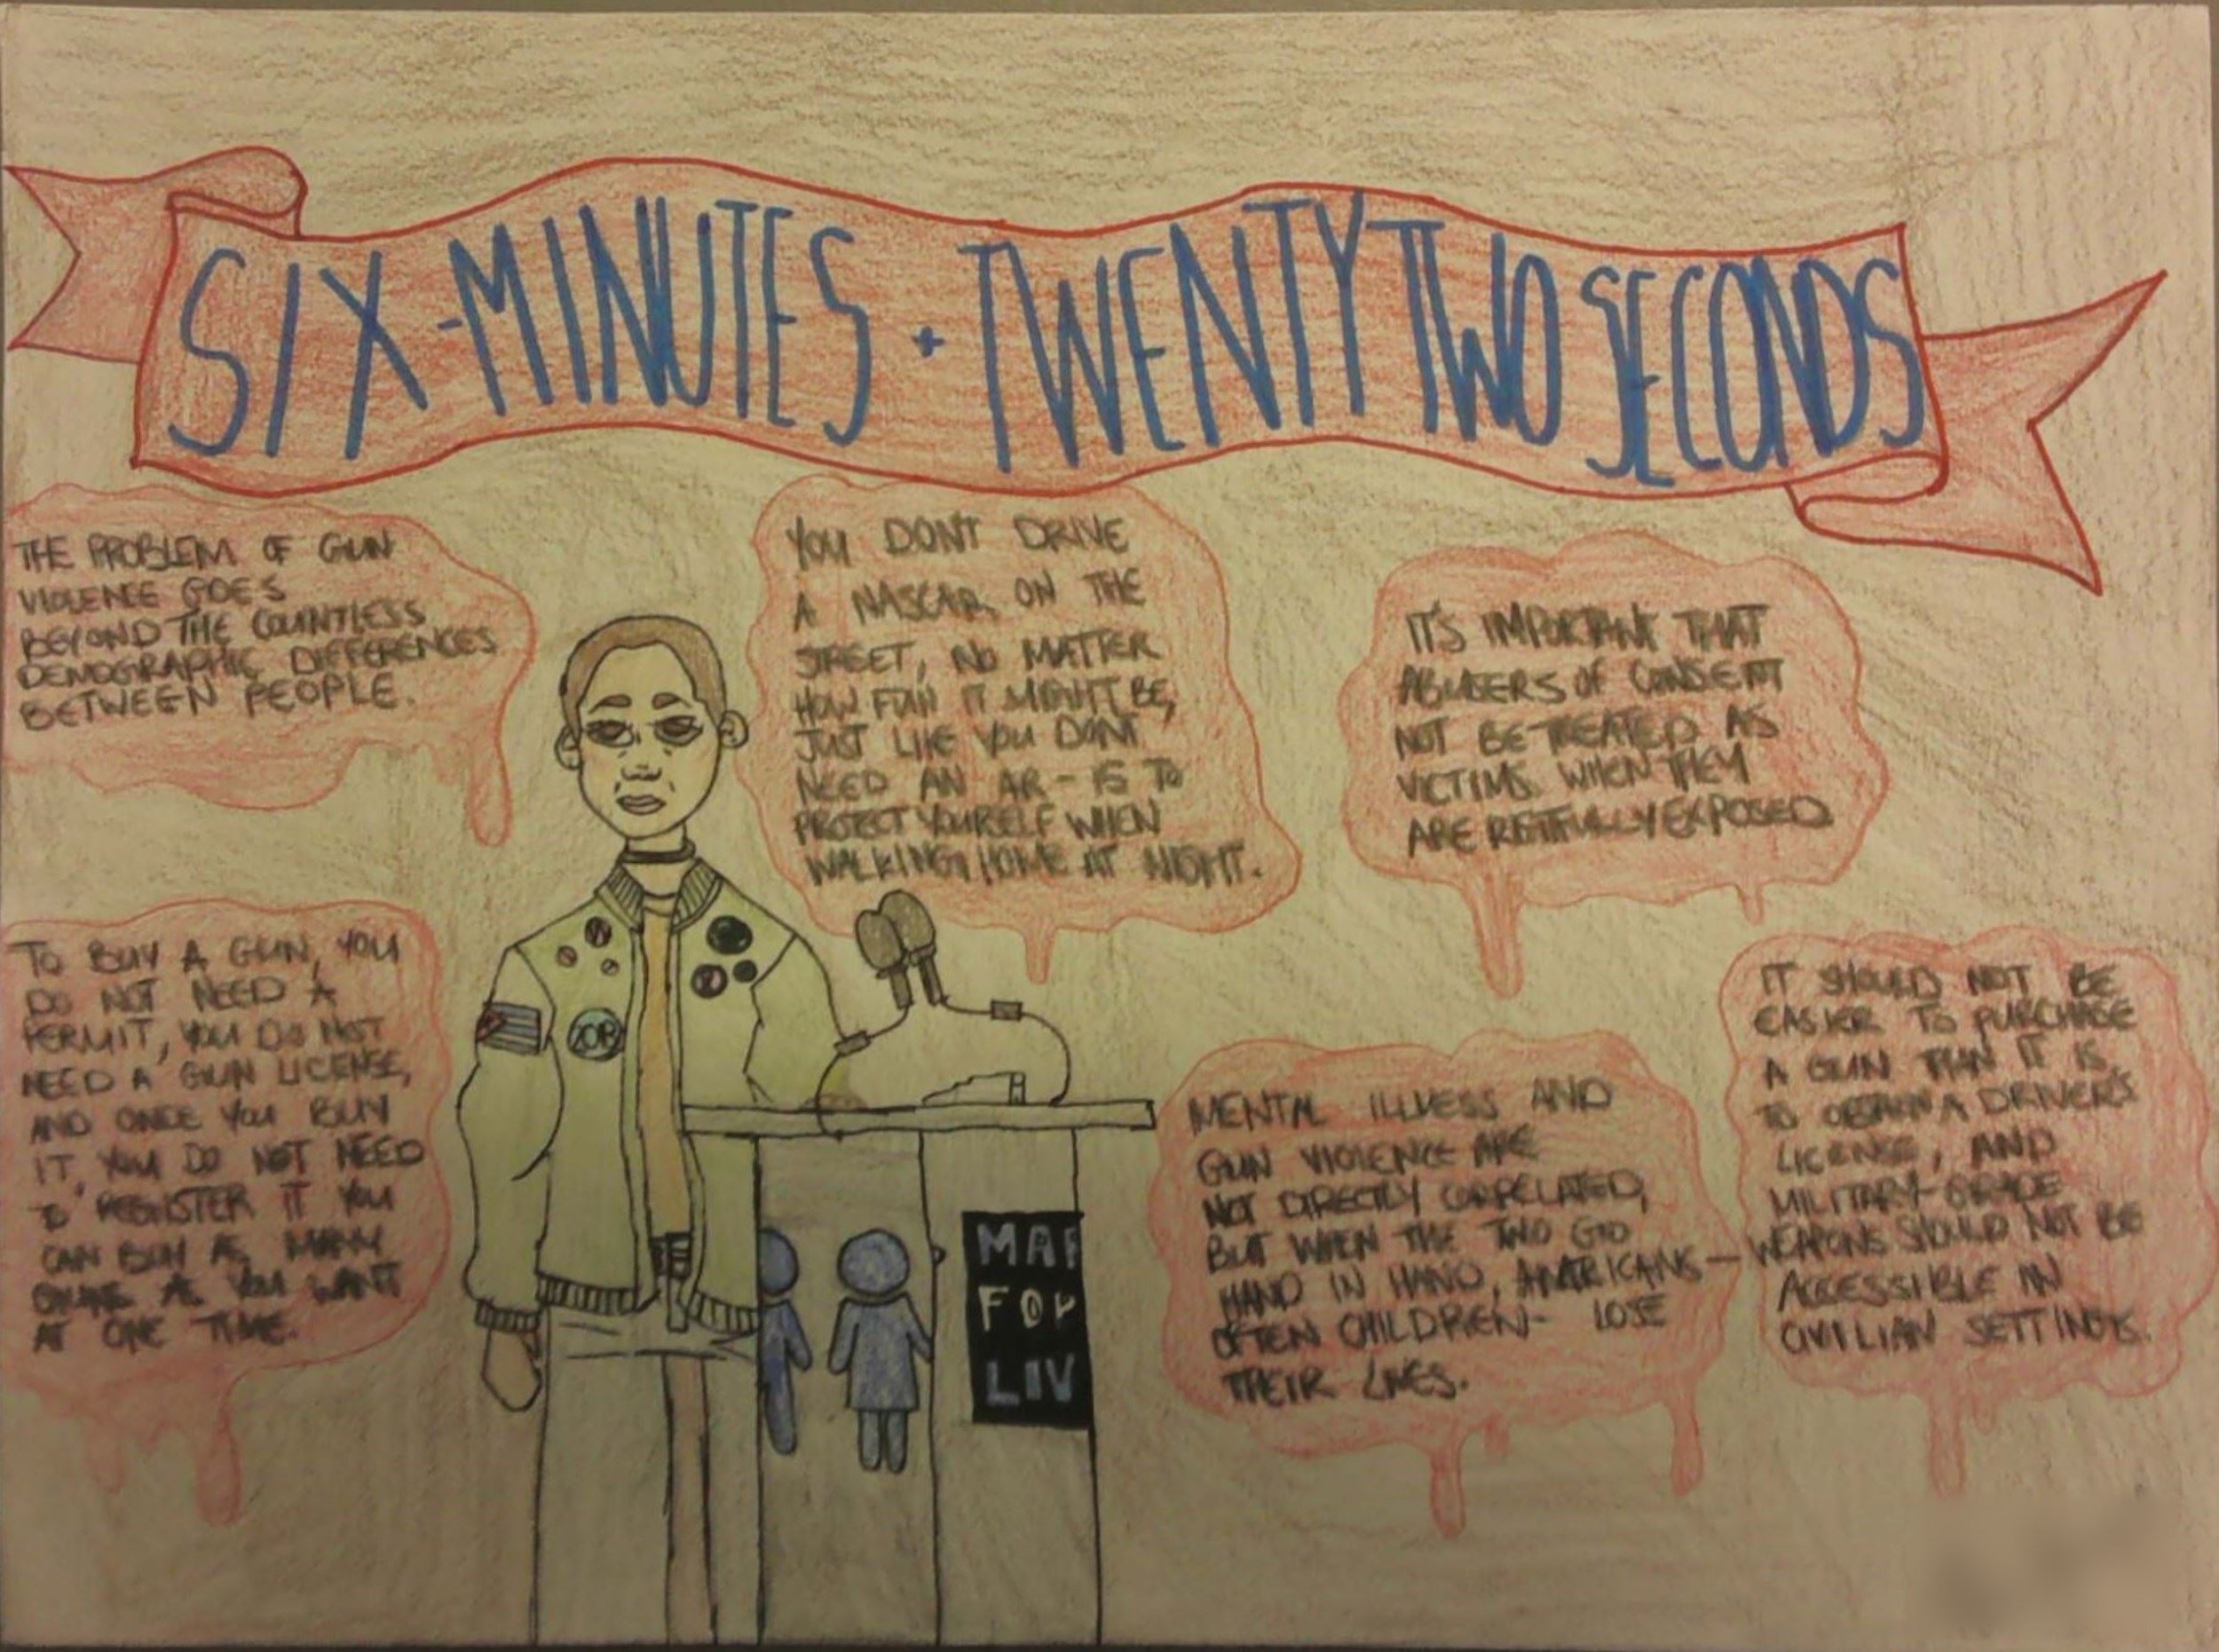 SIX-MINUTES + TWENTY TWO SECONDS
THE PROBLEM OF GUN
VIOLENCE GOES
BEYOND THE COUNTLESS
DEMOGRAPHIC DIFFERENCES
BETWEEN PEOPLE.
YOU DONT DRIVE
A NASCAR ON THE
STREET, NO MATTER
HOW FUN IT MIGHT BE,
JUST LIKE YOU DONT
NEED AN AR-15 TO
PROTECT YOURSELF WHEN
WALKING HOME AT NIGHT.
IT'S IMPORTANT THAT
ABUSERS OF CONSENT
NOT BE TREATED AS
VICTIMS WHEN THEY
ARE EXPOSED
TO BUY A GUN, YOU
DO NOT NEED A
PERMIT, YOU DO NOT
NEED A GUN LICENSE,
AND ONCE YOU BUY
IT, YOU DO NOT NEED
TO REGISTER IT YOU
CAN BUY AS MANY
GUNS AS YOU WANT
AT ONE TIME.
MENTAL ILLNESS AND
GUN VIOLENCE ARE
NOT DIRECTLY CORRELATED,
BUT WHEN THE TWO GO
HAND IN HAND, AMERICANS—
OFTEN CHILDREN- LOSE
THEIR LIVES.
IT SHOULD NOT BE
EASIER TO PURCHASE
A GUN THAN IT IS
TO OBTAIN A DRIVER'S
LICENSE, AND
MILITARY-GRADE
WEAPONS SHOULD NOT BE
ACCESSIBLE IN
CIVILIAN SETTINGS.
MAR
FOR
LIV